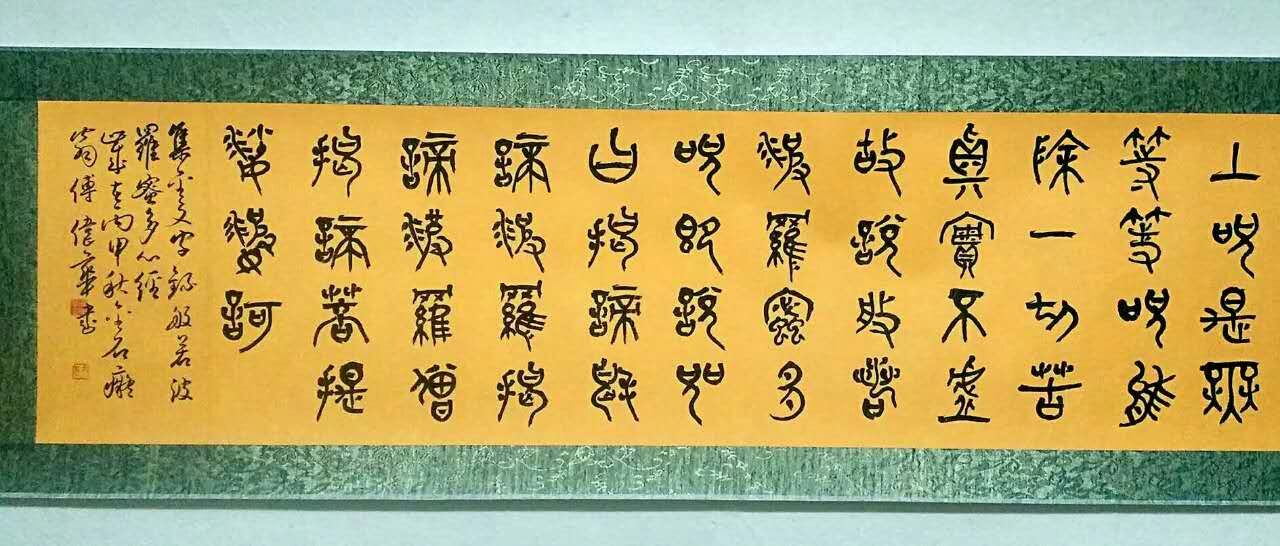 上呪是無
等等呪能
除一切苦
真實不虛
故說般若
波羅蜜多
呪即說呪
曰揭諦揭
諦波羅揭
諦波羅僧
揭諦菩提
薩婆訶
集金文字錄般若波
羅蜜多心經
歲在丙申秋金石癡
翁傅偉華書